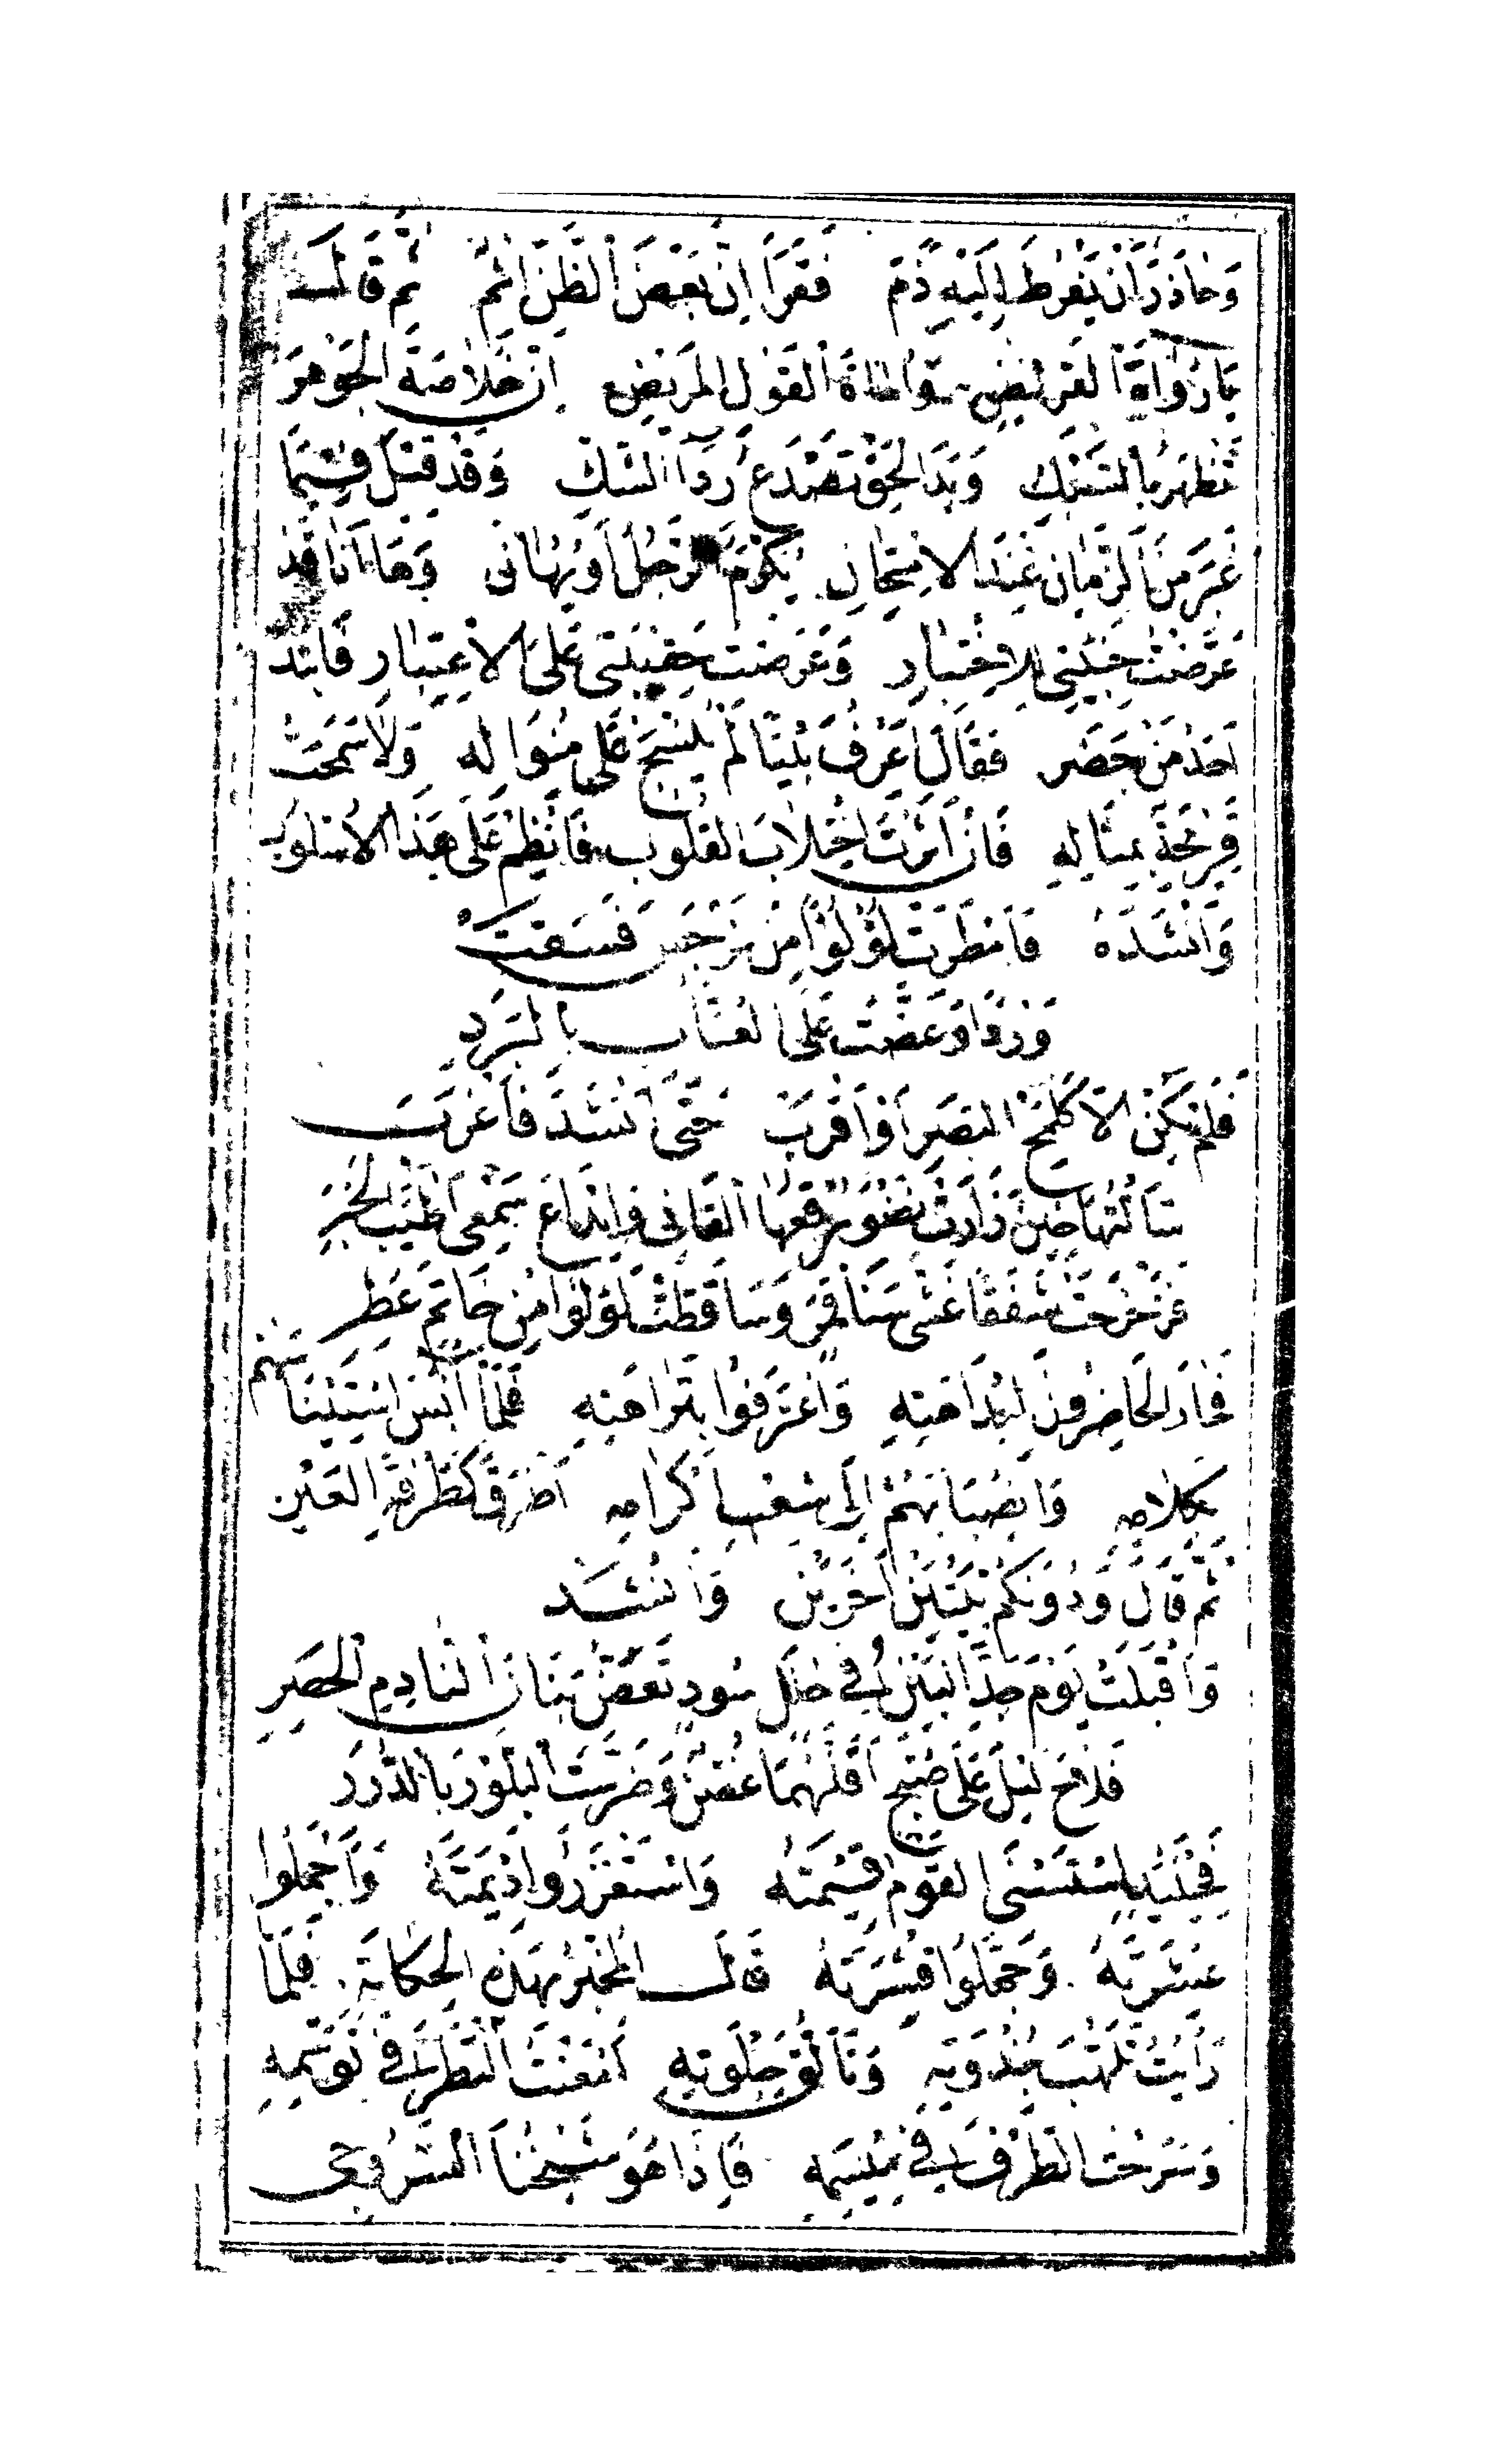 وَحَاذَرَ أَنْ يَفْرُطَ إِلَيْهِ ذَمّ فَقَرَأَ إِنَّ بَعْضَ الظَّنِّ إِثْم ثُمَّ قَالَ
يَا رُوَاةَ الْقَرِيضِ وَأُسَاةَ الْقَوْلِ الْمَرِيضِ إِنَّ خُلَاصَةَ الْجَوْهَرِ
تَظْهَرُ بِالسَّبْكِ وَيَدَ الْحَقِّ تَصْدَعُ رِدَاءَ الشَّكِّ وَقَدْ قِيلَ فِيمَا
غَبَرَ مِنَ الزَّمَانِ عِنْدَ الِامْتِحَانِ يُكْرَمُ الرَّجُلُ أَوْ يُهَانُ وَهَا أَنَا قَدْ
عَرَّضْتُ خَبِيئَتِي لِلِاخْتِبَارِ وَعَرَضْتُ حَقِيبَتِي عَلَى الِاعْتِبَارِ فَابْتَدَ
أَحَدُ مَنْ حَضَرَ فَقَالَ أَعْرِفُ بَيْتًا لَمْ يُنْسَجْ عَلَى مِنْوَالِهِ وَلَا سَمَحَتْ
قَرِيحَةٌ بِمِثَالِهِ فَإِنْ آثَرْتَ اخْتِلَابَ الْقُلُوبِ فَانْظِمْ عَلَى هَذَا الْأُسْلُوبِ
وَأَنْشَدَهُ فَأَمْطَرَتْ لُؤْلُؤًا مِنْ نَرْجِسٍ فَسَقَتْ
وَرْدًا وَعَضَّتْ عَلَى الْعُنَّابِ بِالْبَرَدِ
فَلَمْ يَكُنْ إِلَّا كَلَمْحِ الْبَصَرِ أَوْ أَقْرَبَ حَتَّى أَنْشَدَ فَأَغْرَبَ
سَأَلْتُهَا حِينَ زَارَتْ نَضْوَ بُرْقُعِهَا الْقَانِي وَإِيدَاعَ سَمْعِي أَطْيَبَ الْخَبَرِ
فَزَحْزَحَتْ شَفَقًا غَشَّى سَنَا قَمَرٍ وَسَاقَطَتْ لُؤْلُؤًا مِنْ خَاتَمٍ عَطِرِ
فَحَارَ الْحَاضِرُونَ لِبَدَاهَتِهِ وَاعْتَرَفُوا بِنَزَاهَتِهِ فَلَمَّا آنَسَ اسْتِئْنَاسَهُمْ
بِكَلَامِهِ وَانْصِبَابَهُمْ إِلَى شِعْبِ إِكْرَامِهِ أَطْرَقَ كَطَرْفَةِ الْعَيْنِ
ثُمَّ قَالَ وَدُونَكُمْ بَيْتَيْنِ آخَرَيْنِ وَأَنْشَدَ
وَأَقْبَلَتْ يَوْمَ جَدَّ الْبَيْنُ فِي حُلَلٍ سُودٍ تَعَضُّ بَنَانَ النَّادِمِ الْحَصِرِ
فَلَاحَ لَيْلٌ عَلَى صُبْحٍ أَقَلَّهُمَا غُصْنٌ وَضَرَّسَتِ الْبِلَّوْرَ بِالدُّرَرِ
فَحِينَئِذٍ اسْتَسْنَى الْقَوْمُ قِيمَتَهُ وَاسْتَغْزَرُوا دِيمَتَهُ وَأَجْمَلُوا
عِشْرَتَهُ وَجَمَّلُوا قِشْرَتَهُ قَالَ الْمُخْبِرُ بِهَذِهِ الْحِكَايَةِ فَلَمَّا
رَأَيْتُ تَلَهُّبَ جَذْوَتِهِ وَتَأَلُّقَ جَلْوَتِهِ أَمْعَنْتُ النَّظَرَ فِي تَوَسُّمِهِ
وَسَرَّحْتُ الطَّرْفَ فِي مِيسَمِهِ فَإِذَا هُوَ شَيْخُنَا السَّرُوجِيُّ